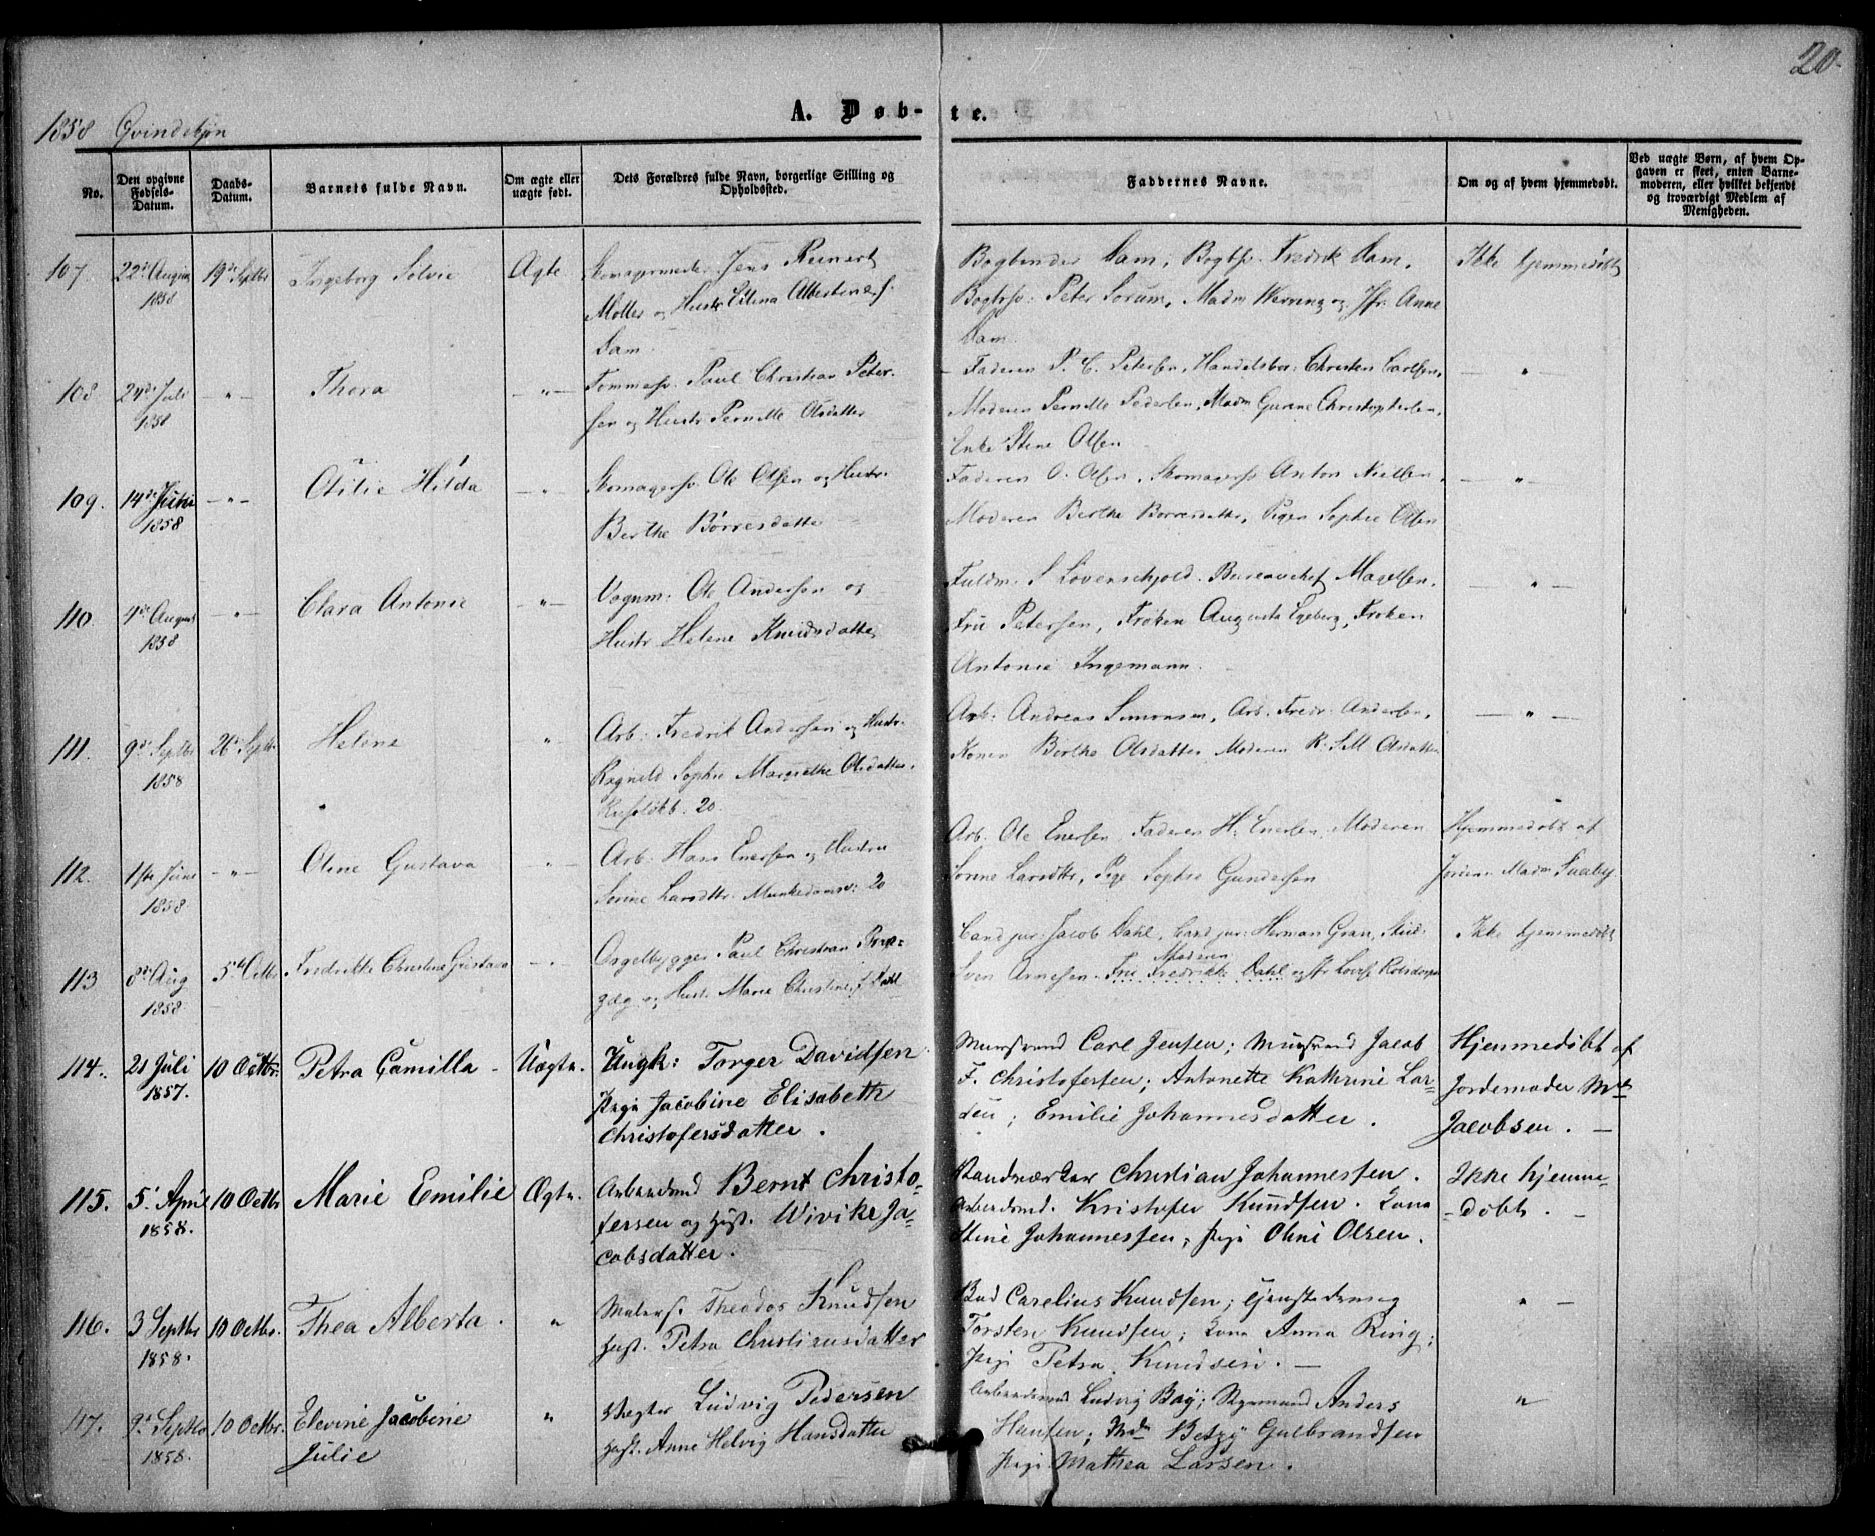 20.
1858 Qvindekjøn
A. Døb-te.
No.
Den opgivne Fødsels-Datum.
Daabs-Datum.
Barnets fulde Navn.
Om ægte eller uægte født.
Dets Forældres fulde Navn, borgerlige Stilling og Opholdssted.
Faddernes Navne.
Om og af hvem hjemmedøbt.
Ved uægte Børn, af hvem Opgaven er skeet, enten Barnemoderen, eller hvilket bekjendt og troværdigt Medlem af Menigheden.
107. 22de August 1858 19de Septbr Ingeborg Solvie Ægte
Skomagermester Jens Reinert
Møller og Hustr. Elina Albertine f.
Dam.
Bogbinder Dam, Bogbsv. Fredrik Dam,
Bogbsv. Peter Sorum, Madm Werring og Jfr. Anne
Dam.
Ikke hjemmedøbt
108. 24de Juli 1858 — " — Thora — " —
Tømmersv. Paul Christian Peter-
sen og Hustr Pernille Olsdatter
Faderen P. C. Petersen, Handelsbor. Christen Carlsen,
Moderen Pernille Pedersen, Madm Gurine Christophersen,
Enke Stine Olsen
— " —
109. 14de Juni 1858 — " — Otilie Hilda — " —
Skomagersv. Ole Olsen og Hustr.
Berthe Börresdatter
Faderen O. Olsen, Skomagersv Anton Nielsen,
Moderen Berthe Borresdatter, Pigen Sophie Olsen
— " —
110 4de August 1858 — " — Clara Antonie — " —
Vognm: Ole Andersen og
Hustr Helene Knudsdatter
Fuldm. S Lövenschjold. Bureauchef Magelsen.
Fru Petersen, Frøken Augusta Egeberg, Frøken
Antonie Ingemann.
— " —
111. 9de Septbr 1858 26de Septbr Helene "
Arb: Fredrik Andersen og Hustr.
Ragnild Sophie Margrethe Olsdatter.
20
Arb: Andreas Simonsen, Arb. Fredr. Andersen,
Konen Berthe Olsdatter Moderen R. S. M Olsdatter
— " —
112. 1ste Juni 1858 — " — Oline Gustava — " —
Arb: Hans Enersen og Hustru
Sorine Larsdttr. Munkedamsv: 20
Arb. Ole Enersen, Faderen H. Enersen, Moderen
Sorine Larsdttr, Pige Sophie Gundersen
Hjemmedøbt af
Jordm. Madm Svaby.
113 8de Aug 1858 5te Octbr Fredrikke Christine Gustava — " —
Orgelbygger Paul Christian
og Hust. Marie Christine f. Dahl
Cand jur: Jacob Dahl, Cand jur: Herman Gran, Stud.
Sven Arnesen. Moderen Fru Fredrikke Dahl og Jfr Lovise
Ikke hjemmedøbt
114. 21 Juli 1857. 10 Octbr. Petra Camilla - Uægte.
Ungk: Torger Davidsen
Pige Jacobine Elisabeth
Christofersdatter.
Murersvend Carl Jensen; Murersvend Jacob
F. Christofersen; Antonette Kathrine Lar-
sen; Emilie Johannesdatter.
Hjemmedöbt af
Jordemoder Md
Jacobsen. —
115. 5. April 1858. 10 Octbr Marie Emilie Ægte.
Arbeidsmd Bernt Christo-
fersen og Hust. Wivike Ja-
cobsdatter.
Haandværker Christian Johannessen.
Arbeidsmd. Kristofer Kundsen. Kone
Stine Johannessen, Pige Oline Olsen.
Ikke hjemme-
-döbt. —
116. 3 Septbr 1858. 10 Octbr. Thea Alberta. "
Malersv. Theodor Knudsen
Hust. Petra Christiensdatter
Bud Carelius Knudsen; Tjenestedreng
Torsten Knudsen; Kone Anna Ring;
Pige Petra Knudsen. —
" —
117. 9de Septbr 1858. 10 Octbr. Elevine Jacobine
Julie "
Vægter Ludvig Pedersen
Hust. Anne Helvig Hansdatter
Arbeidsmd Ludvig Bay; Anders
Hansen; Md. Betzy Gulbrandsen
Pige Mathea Larsen.
"